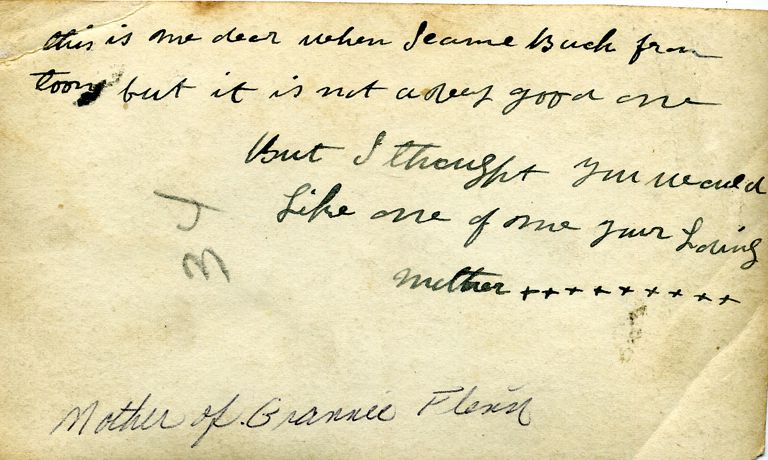 this is me dear when I came Back from
toon but it is not a very good one
But I thought you would
Like one of me your Loving
mother +++++++++
34
Mother of Grannie